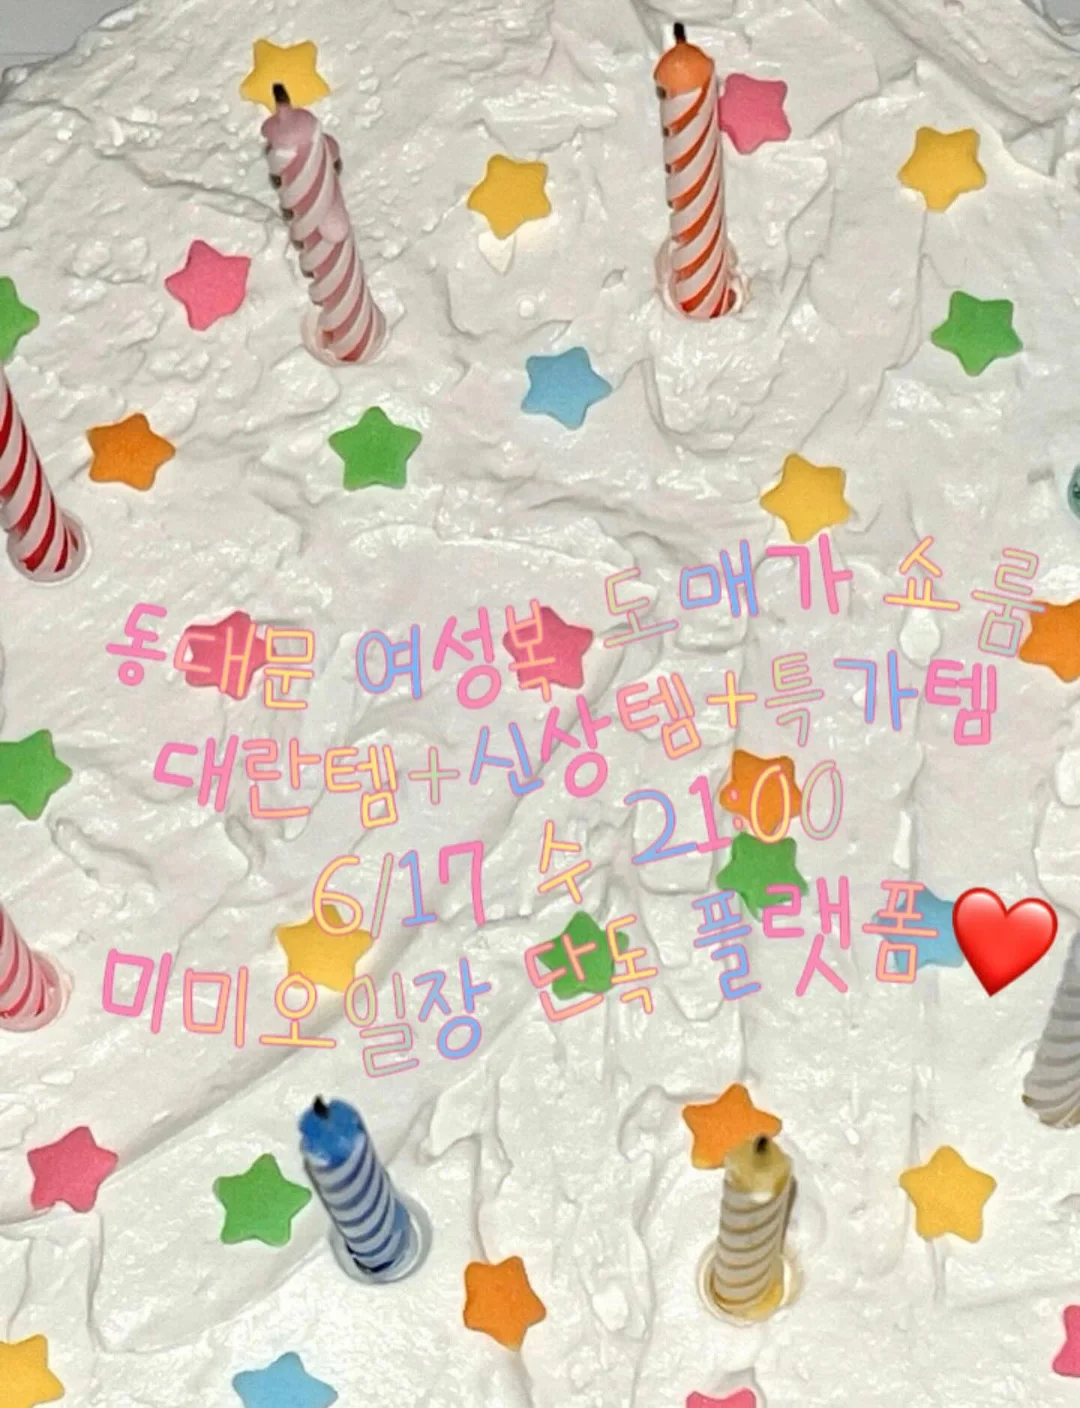 동대문 여성복 도매가 쇼룸
대란템+신상템+특가템
6/17 수 21:00
미미오일장 단독 플랫폼❤️